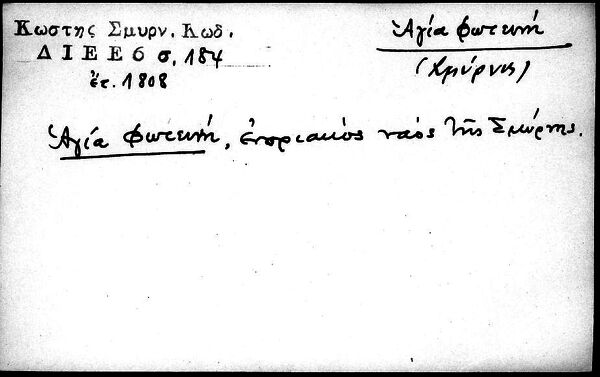 Κωστης Σμυρν. Κωδ.
Δ Ι Ε Ε 6 σ. 184
ἐτ. 1808
Ἁγία Φωτεινή
(Σμύρνης)
Ἁγία Φωτεινή, ἐνοριακὸς ναὸς τῆς Σμύρνης.